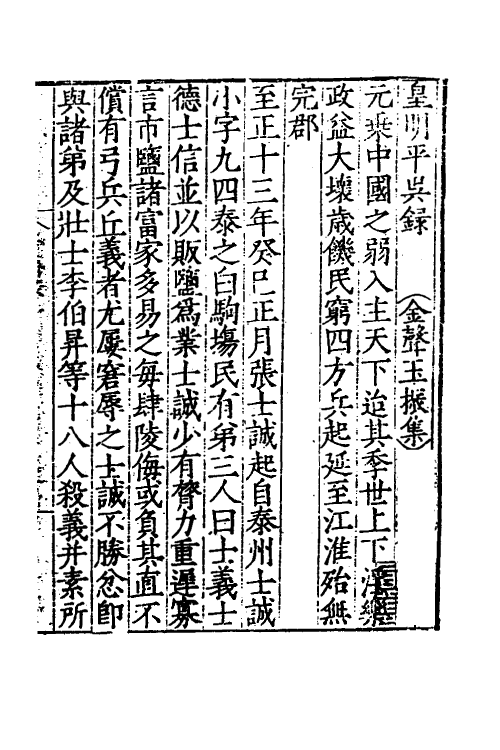 皇明平吳録　　（金聲玉振集）
元乗中國之弱入主天下迨其季世上下
政益大壞歲饑民窮四方兵起延至江淮殆無
完郡
至正十三年癸巳正月張士誠起自泰州士誠
小字九四泰之白駒場民有弟三人曰士義士
德士信並以販鹽爲業士誠少有膂力重遲寡
言市鹽諸富家多易之每肆陵侮或負其直不
償有弓兵丘義者尤屢窘辱之士誠不勝忿即
與諸弟及壯士李伯昇等十八人殺義并素所